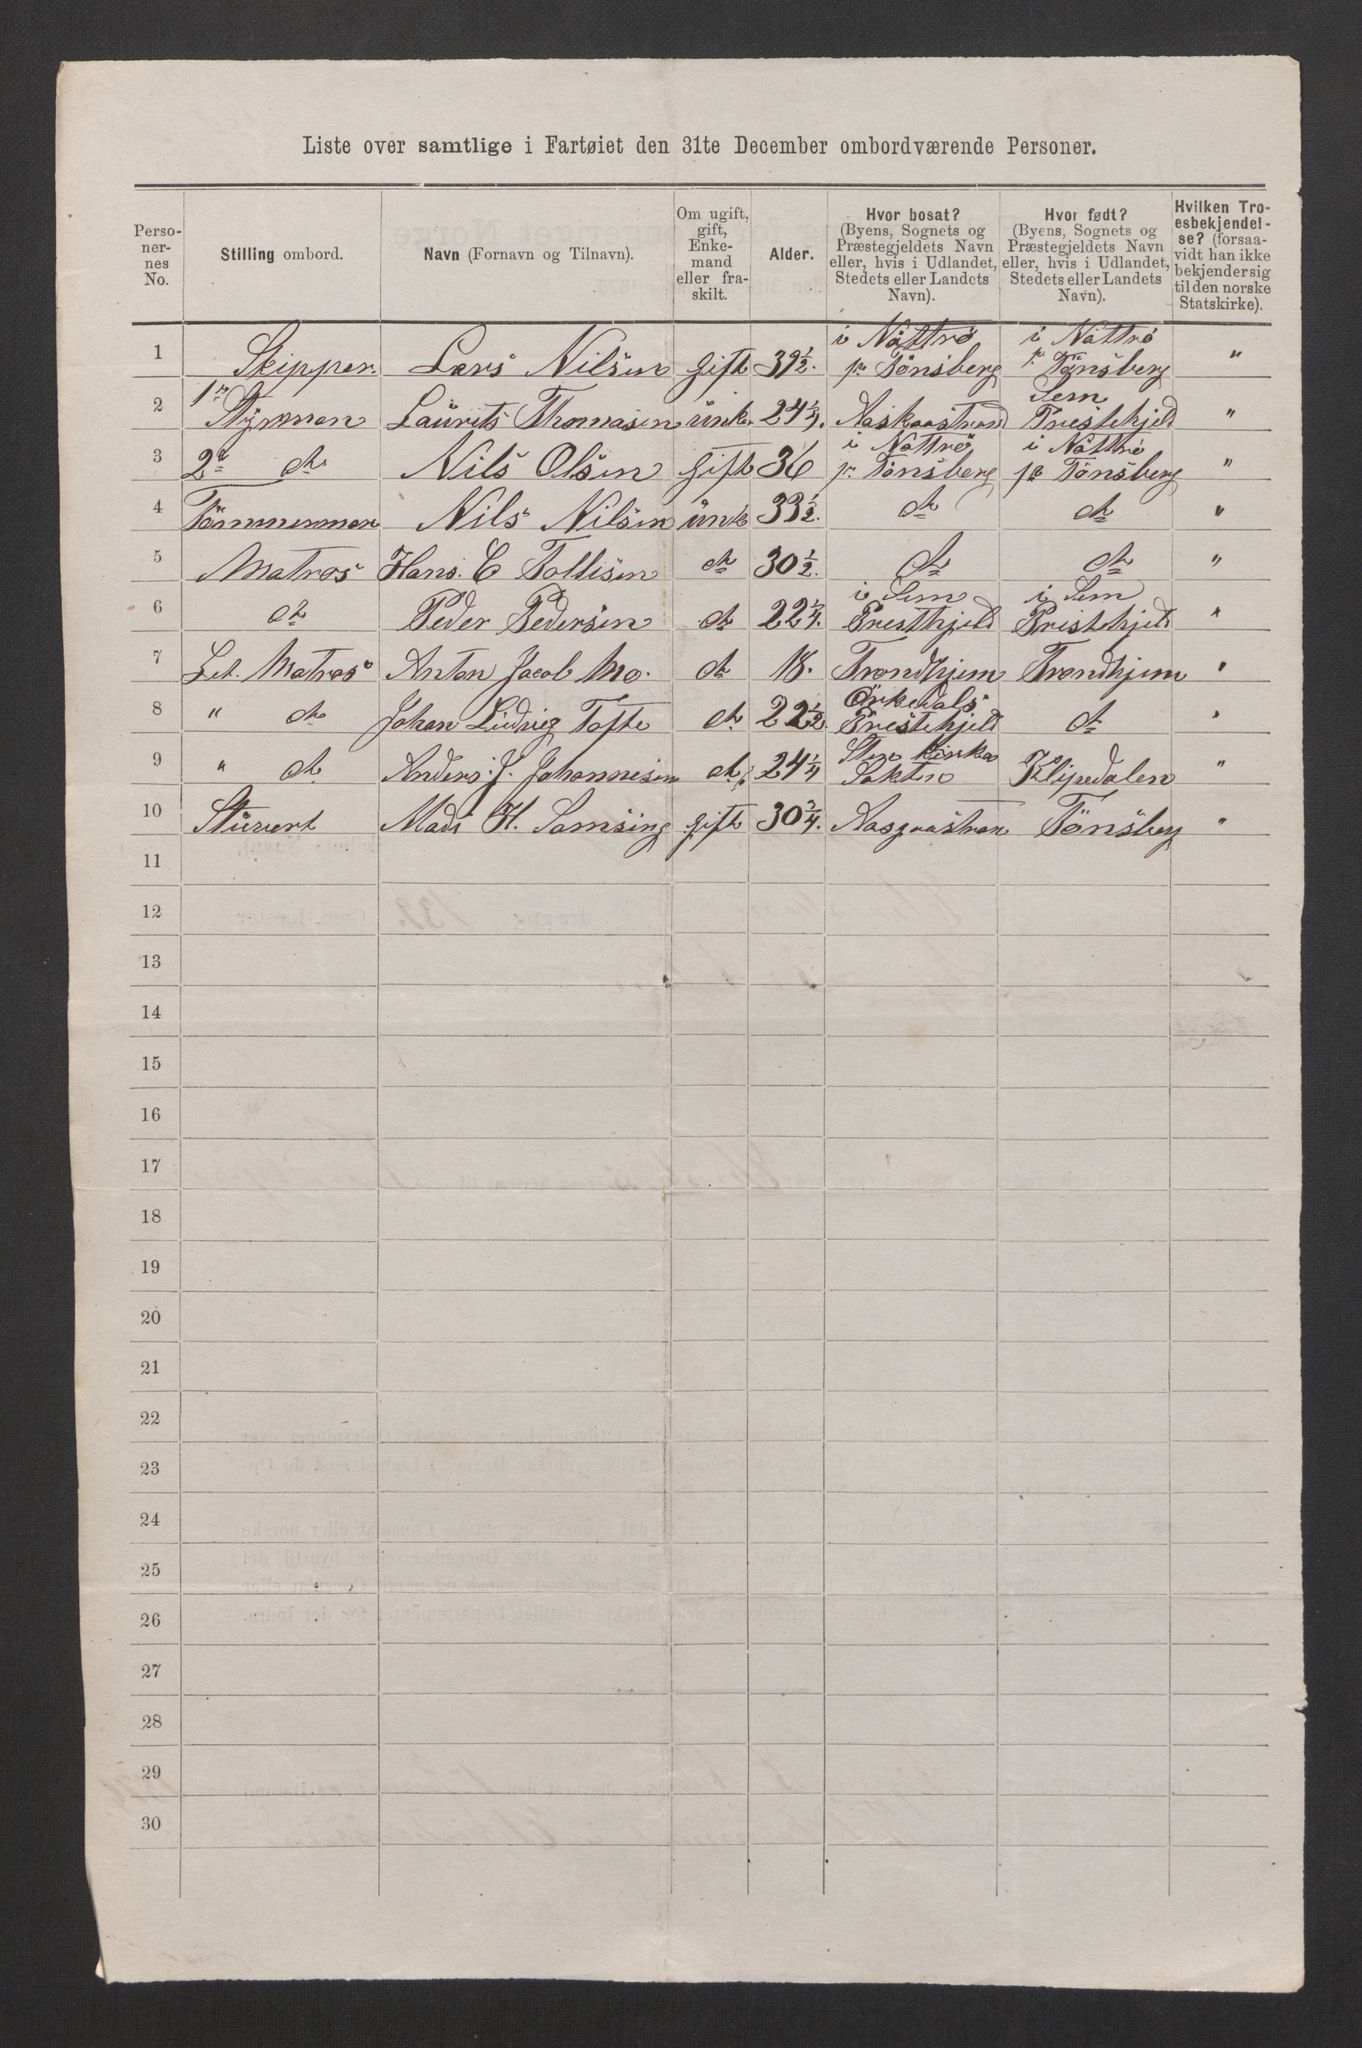 Liste over samtlige i Fartøiet den 31te December ombordværende Personer.
Perso-
ner-
nes
No.
Stilling ombord.
Navn (Fornavn og Tilnavn).
Om ugift,
gift,
Enke-
mand
eller fra-
skilt.
Alder.
Hvor bosat?
(Byens, Sognets og
Præstegjeldets Navn
eller, hvis i Udlandet,
Stedets eller Landets
Navn).
Hvor født?
(Byens, Sognets og
Præstegjeldets Navn
eller, hvis i Udlandet,
Stedets eller Landets
Navn).
Hvilken Tro-
esbekjendel-
se? (forsaa-
vidt han ikke
bekjender sig
til den norske
Statskirke).
1 Skipper. Lars Nilsen gift 39½. i Nøttrö pr Tönsberg i Nøttrö pr Tönsberg "
2 1ste Styrman Laurits Thomasen unk. 24¼. Aaskaastrand Sem Prestekjeld "
3 2n do Nils Olsen gift 36 i Nøttrö pr. Tönsberg i Nøttrö pr Tönsberg "
4 Tömmerman Nils Nilsen unk 33½. do do "
5 Matros Hans. C Tollisen do 30½. do do "
6 do Peder Pedersen do 22¼. i Sem Presthjeld i Sem Pristehjeld "
7 Let. Matros Anton Jacob Mo. do 18. Trondhjem Trondhjem "
8 " do Johan Ludvig Tofte do 22½. Örkedals Prestehjeld do "
9 " do Anders. J. Johannesen do 24¼ Sten Kirke Sokten Klipedalen "
10 Stuvert Mads H. Samsing gift 30¾. Aasgaastran Tönsberg "
11
12
13
14
15
16
17
18
19
20
21
22
23
24
25
26
27
28
29
30